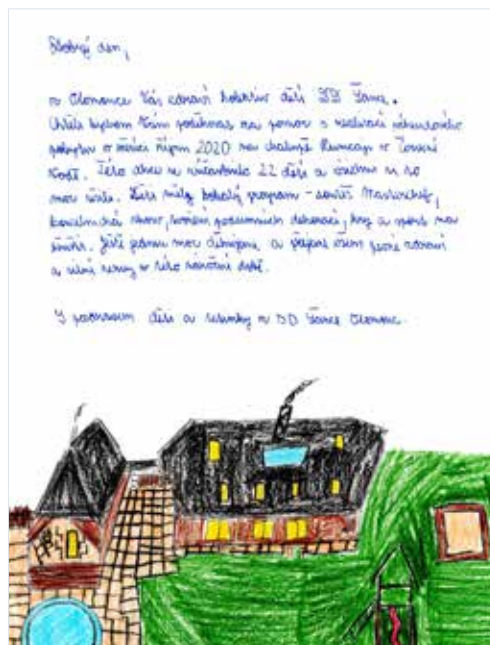 Dobrý den,
z Olomouce Vás zdraví kolektiv dětí DD Šance.
Chtěli bychom Vám poděkovat za pomoc s realizací víkendového
pobytu v měsíci říjnu 2020 na chalupě Rumcajs v České
Vsi. Této akce se zúčastnilo 22 dětí a všem se to
moc líbilo. Děti měly bohatý program – soutěž Masterchef,
kouzelnická show, tvoření podzimních dekorací, hry a sport na
Ještě jednou moc děkujeme, a přejeme všem pevné zdraví
a silné nervy v této náročné době.
S pozdravem děti a tetinky z DD Šance Olomouc.